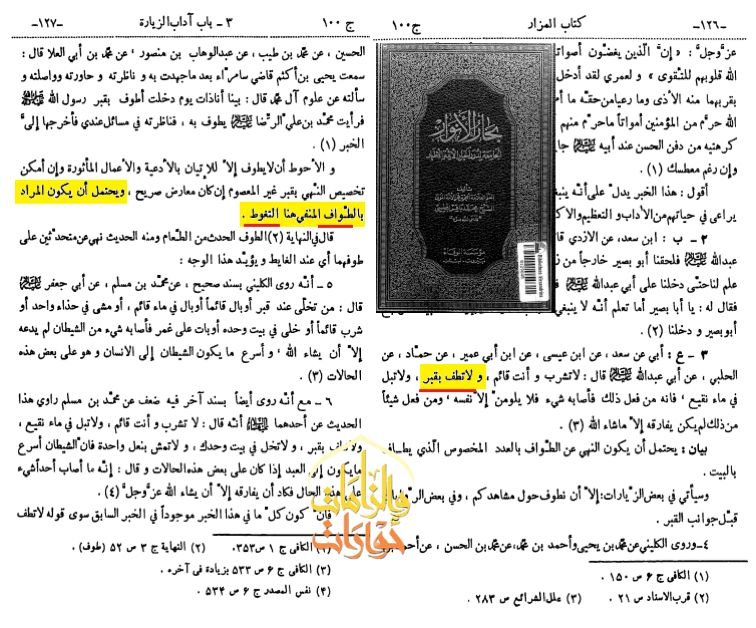 -١٢٦- كتاب المزار ج١٠٠
عزّ وجلّ : « إنّ الّذين يغضّون أصواتـ
الله قلوبهم للتقوى » ولعمري لقد أدخل
بقربهما منه الأذى وما رعيا من حقّه ما أ
الله حرّم من المؤمنين أمواتاً ما حرّم منهم
كرهتيه من دفن الحسن عند أبيه
وإن رغم معطسك (١) .
أقول : هذا الخبر يدل على أنّه ينبغـ
يراعى في حياتهم من الآداب و التعظيم والاكـ
٢ - ب : ابن سعد، عن الأزدي قا
فلحقنا أبو بصير خارجاً من ز
علم لنا حتّى دخلنا على أبي عبدالله
فقال له : يا أبا بصير أما تعلم أنّه لا ينبغي
أبو بصير و دخلنا (٢) .
٣ - ع : أبي عن سعد، عن ابن عيسى ، عن ابن أبي عمير ، عن حمّاد ، عن
الحلبي ، عن أبي عبدالله عليه السلام قال : لا تشرب و أنت قائم ، و لا تطف بقبر ، ولا تبل
في ماء نقيع ، فانه من فعل ذلك فأصابه شيء فلا يلومنّ إلاّ نفسه ، ومن فعل شيئاً
من ذلك لم يكن يفارقه إلاّ ماشاء الله (٣) .
بيان : يحتمل أن يكون النهي عن الطواف بالعدد المخصوص الّذي يطاف
بالبيت .
وسيأتي في بعض الزيارات : إلاّ أن نطوف حول مشاهدكم ، وفي بعض الر
قبل جوانب القبر .
٤- وروى الكليني عن محمّد بن يحيى وأحمد بن محمّد، عن محمّد بن الحسن ، عن أحمد
(١) الكافي ج ٦ ص ١٥٠ .
(٢) قرب الاسناد ص ٢١ . (٣) علل الشرائع ص ٢٨٣ .
بحار الأنوار
الجامعة لدرر أخبار الأئمة الأطهار
تأليف
مؤسسة الوفاء
ج ١٠٠ ٣ - باب آداب الزيارة -١٢٧-
الحسين ، عن محمّد بن طيب ، عن عبدالوهاب بن منصور ، عن محمّد بن أبي العلا قال :
سمعت يحيى بن أكثم قاضي سامرّاء بعد ما جهدت به و ناظرته و حاورته وواصلته و
سألته عن علوم آل محمّد قال : بينا أنا ذات يوم دخلت أطوف بقبر رسول الله صلى الله عليه وآله
فرأيت محمّد بن علي الرّضا عليه السلام يطوف به ، فناظرته في مسائل عندي فأخرجها إليّ
الخبر (١) .
و الأحوط أن لا يطوف إلاّ للإتيان بالأدعية والأعمال المأثورة وإن أمكن
تخصيص النّهي بقبر غير المعصوم إن كان معارض صريح ، ويحتمل أن يكون المراد
بالطّواف المنفي هنا التغوط .
قال في النهاية (٢) الطوف الحدث من الطّعام ومنه الحديث نهى عن متحدّثين على
طوفهما أي عند الغايط و يؤيّد هذا الوجه :
٥ - أنّه روى الكليني بسند صحيح ، عن محمّد بن مسلم ، عن أبي جعفر عليه السلام
قال : من تخلّى عند قبر أوبال قائماً أوبال في ماء قائم ، أو مشى في حذاء واحد أو
شرب قائماً أو خلى في بيت وحده أوبات على غمر فأصابه شيء من الشيطان لم يدعه
إلاّ أن يشاء الله ، و أسرع ما يكون الشيطان إلى الانسان و هو على بعض هذه
الحالات (٣) .
٦ - مع أنّه روى أيضاً بسند آخر فيه ضعف عن محمّد بن مسلم راوي هذا
الحديث عن أحدهما عليه السلام أنّه قال : لا تشرب و أنت قائم ، ولا تبل في ماء نقيع ،
ولا تطف بقبر ، ولا تخل في بيت وحدك ، ولا تمش بنعل واحدة فانّ الشيطان أسرع
ما يكون إلى العبد إذا كان على بعض هذه الحالات و قال : إنّه ما أصاب أحداً شيء
على هذه الحال فكاد أن يفارقه إلاّ أن يشاء الله عزّ وجلّ (٤) .
فإنّ كون كلّ ما في هذا الخبر موجوداً في الخبر السابق سوى قوله لا تطف
(١) الكافي ج ١ ص ٣٥٣ . (٢) النهاية ج ٣ ص ٥٢ (طوف) .
(٣) الكافي ج ٦ ص ٥٣٣ بزيادة في آخره .
(٤) نفس المصدر ج ٦ ص ٥٣٤ .
حوارات